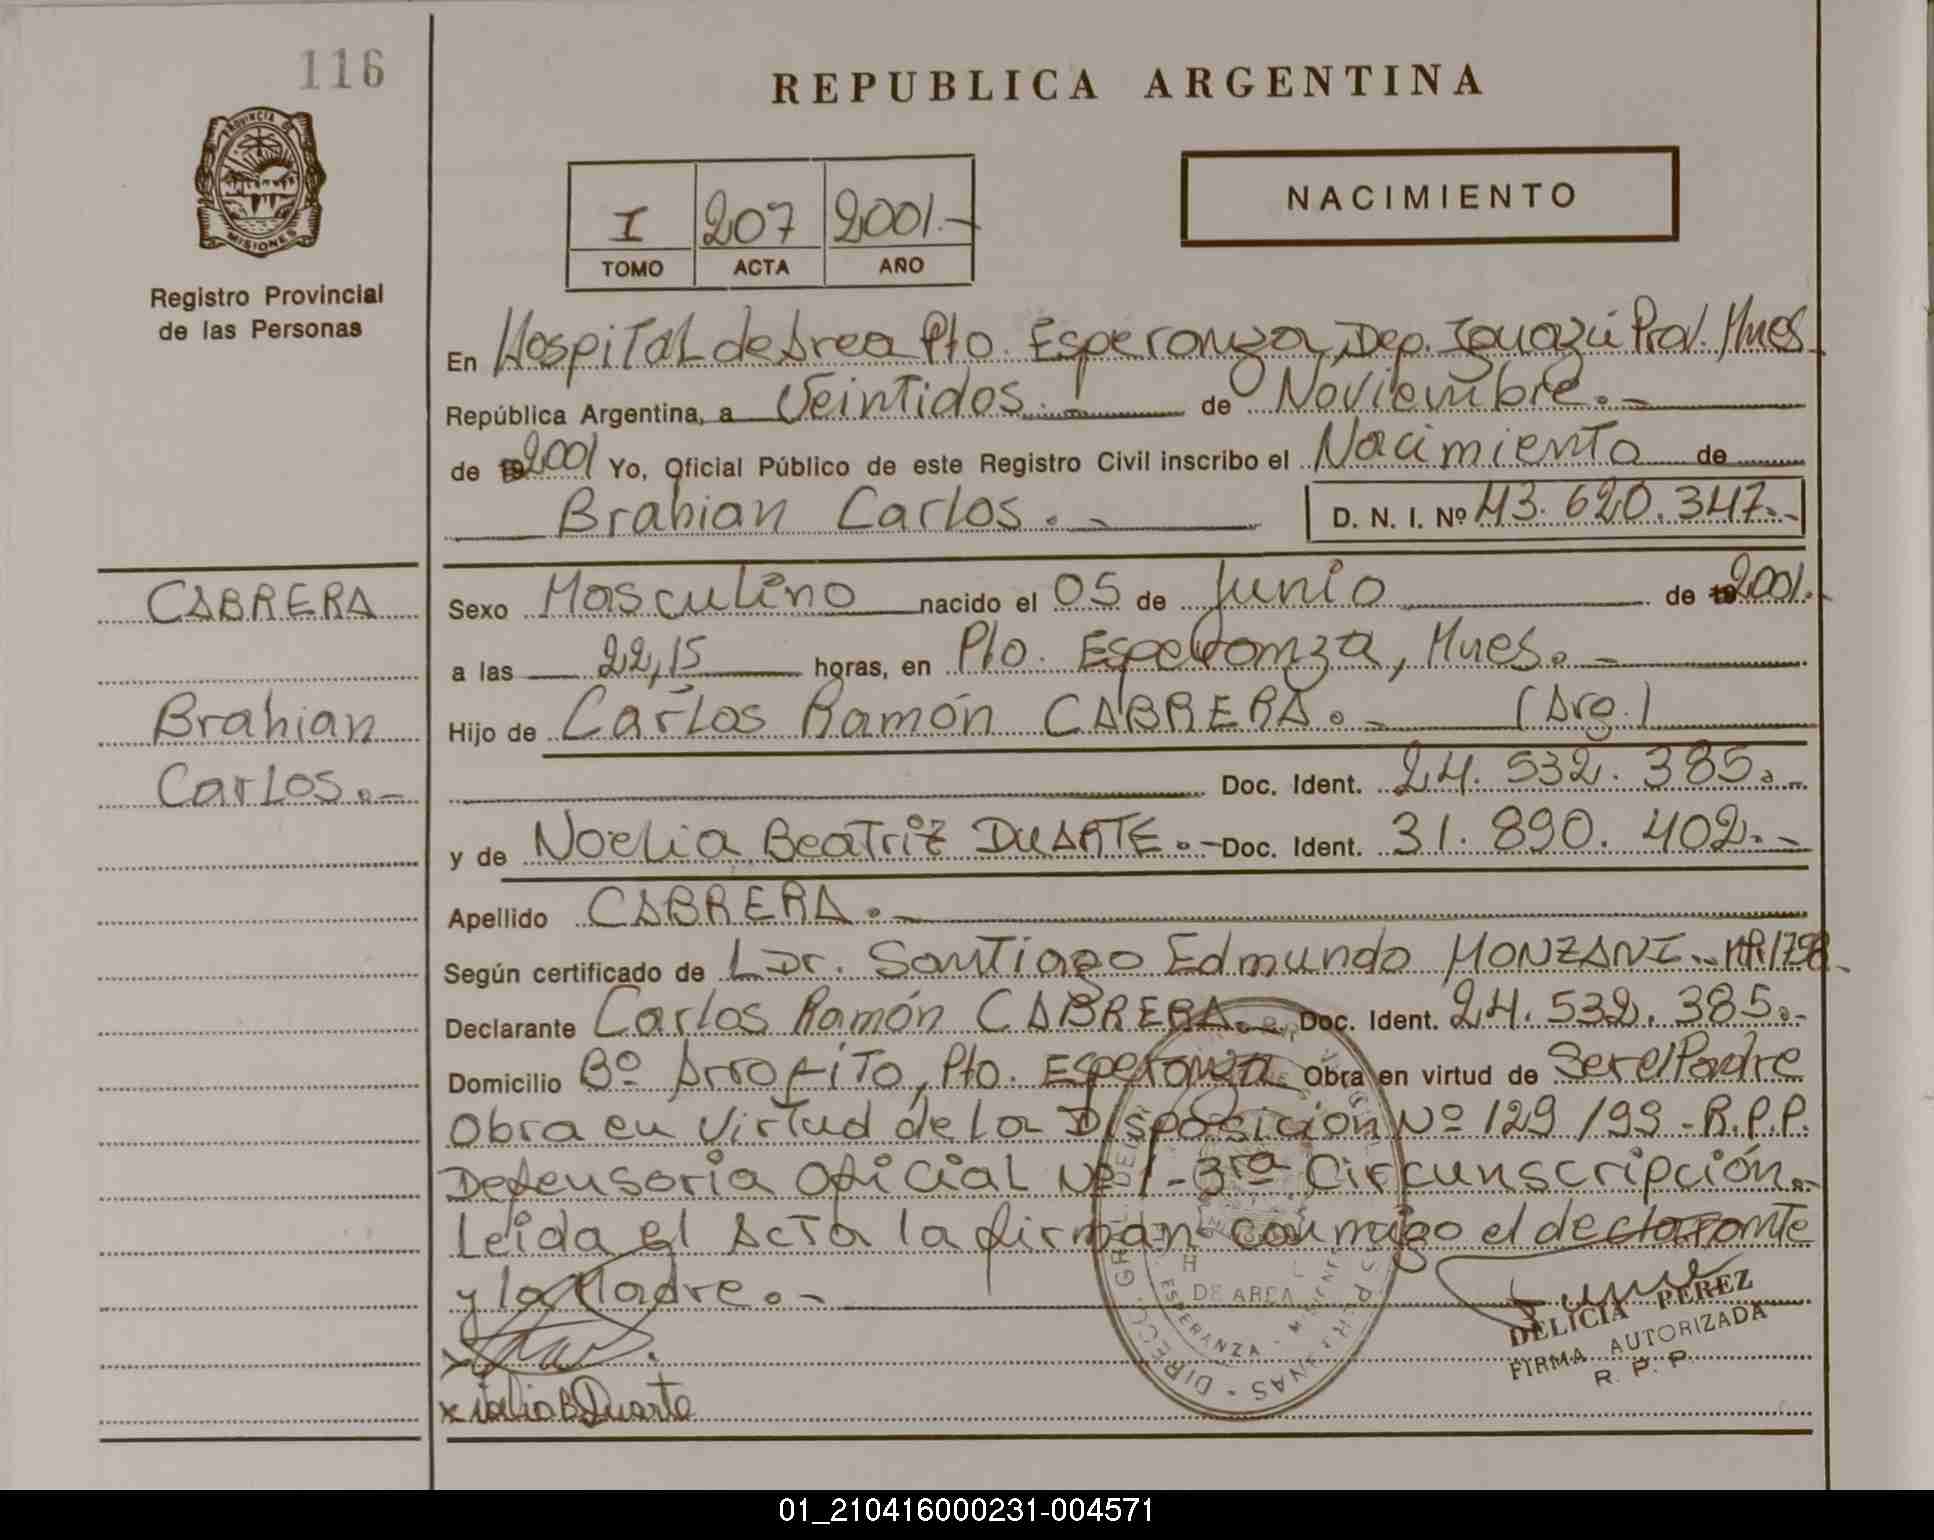 116
REPUBLICA ARGENTINA
PROVINCIA DE
MISIONES
Registro Provincial
de las Personas
I 207 2001.-
TOMO ACTA AÑO
NACIMIENTO
En Hospital de Area Pto. Esperanza, Dep. Iguazú Prov. Mnes
República Argentina, a Veintidos.- de Noviembre.-
de 2001 Yo, Oficial Público de este Registro Civil inscribo el Nacimiento de
Brahian Carlos.- D. N. I. Nº 43.620.347.-
CABRERA
Brahian
Carlos.-
Sexo Masculino nacido el 05 de Junio de 2001.
a las 22,15 horas, en Pto. Esperanza, Mnes.-
Hijo de Carlos Ramón CABRERA.- (Arg.)
Doc. Ident. 24.532.385.-
y de Noelia Beatriz DUARTE.- Doc. Ident. 31.890.402.-
Apellido CABRERA.-
Según certificado de Dr. Santiago Edmundo MONZANI.-
Declarante Carlos Ramón CABRERA.- Doc. Ident. 24.532.385.-
Domicilio Bº Arroyito, Pto. Esperanza Obra en virtud de Ser el Padre
Obra en virtud de la Disposición Nº 129/99-R.P.P.
Defensoria Oficial Nº 1-3ra Circunscripción.-
Leida el Acta la firman conmigo el declarante
y la Madre.-
DELICIA PEREZ
FIRMA AUTORIZADA
R. P. P.
DE AREA
ESPERANZA
x Noelia B Duarte
01_210416000231-004571